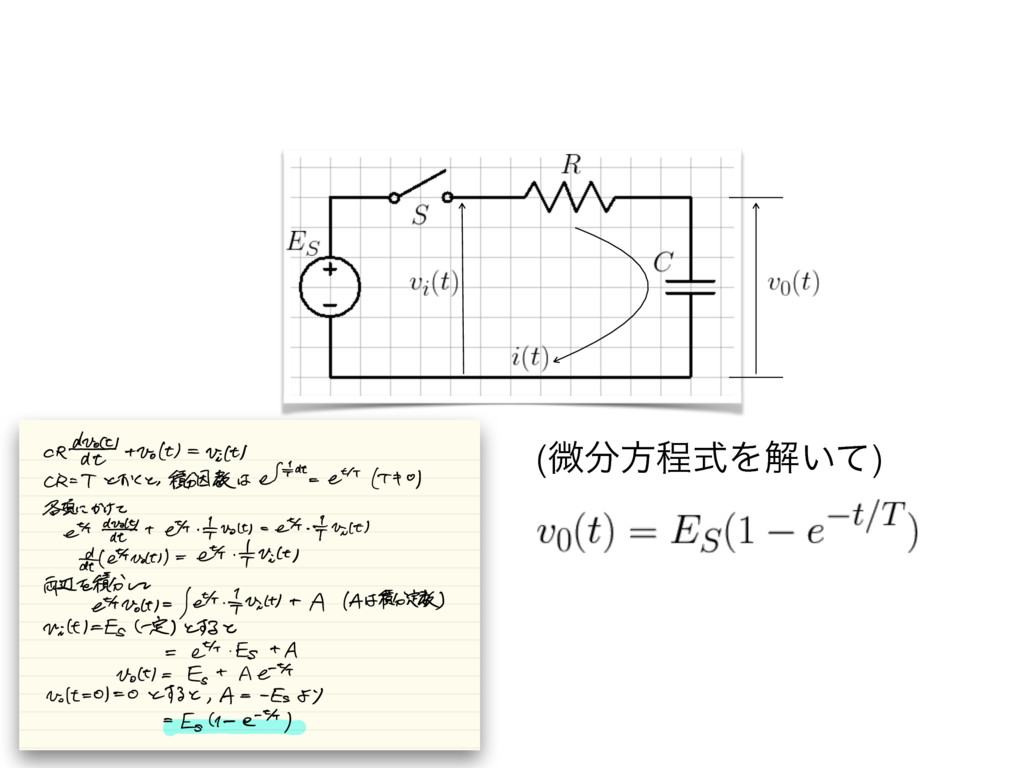 R
S
E_S
C
v_i(t)
v_0(t)
i(t)
CR dv₀(t)/dt + v₀(t) = vᵢ(t)
CR=T とおくと, 積分因数は e^∫(1/T)dt = e^(t/T) (T≠0)
各項にかけて
e^(t/T) dv₀(t)/dt + e^(t/T)・1/T v₀(t) = e^(t/T)・1/T vᵢ(t)
d/dt (e^(t/T) v₀(t)) = e^(t/T)・1/T vᵢ(t)
両辺を積分して
e^(t/T) v₀(t) = ∫e^(t/T)・1/T vᵢ(t) + A (Aは積分定数)
vᵢ(t)=E_S (一定) とすると
= e^(t/T)・E_S + A
v₀(t) = E_S + A e^(-t/T)
v₀(t=0)=0 とすると, A = -E_S より
= E_S (1 - e^(-t/T))
(微分方程式を解いて)
v_0(t) = E_S(1 − e^{−t/T})